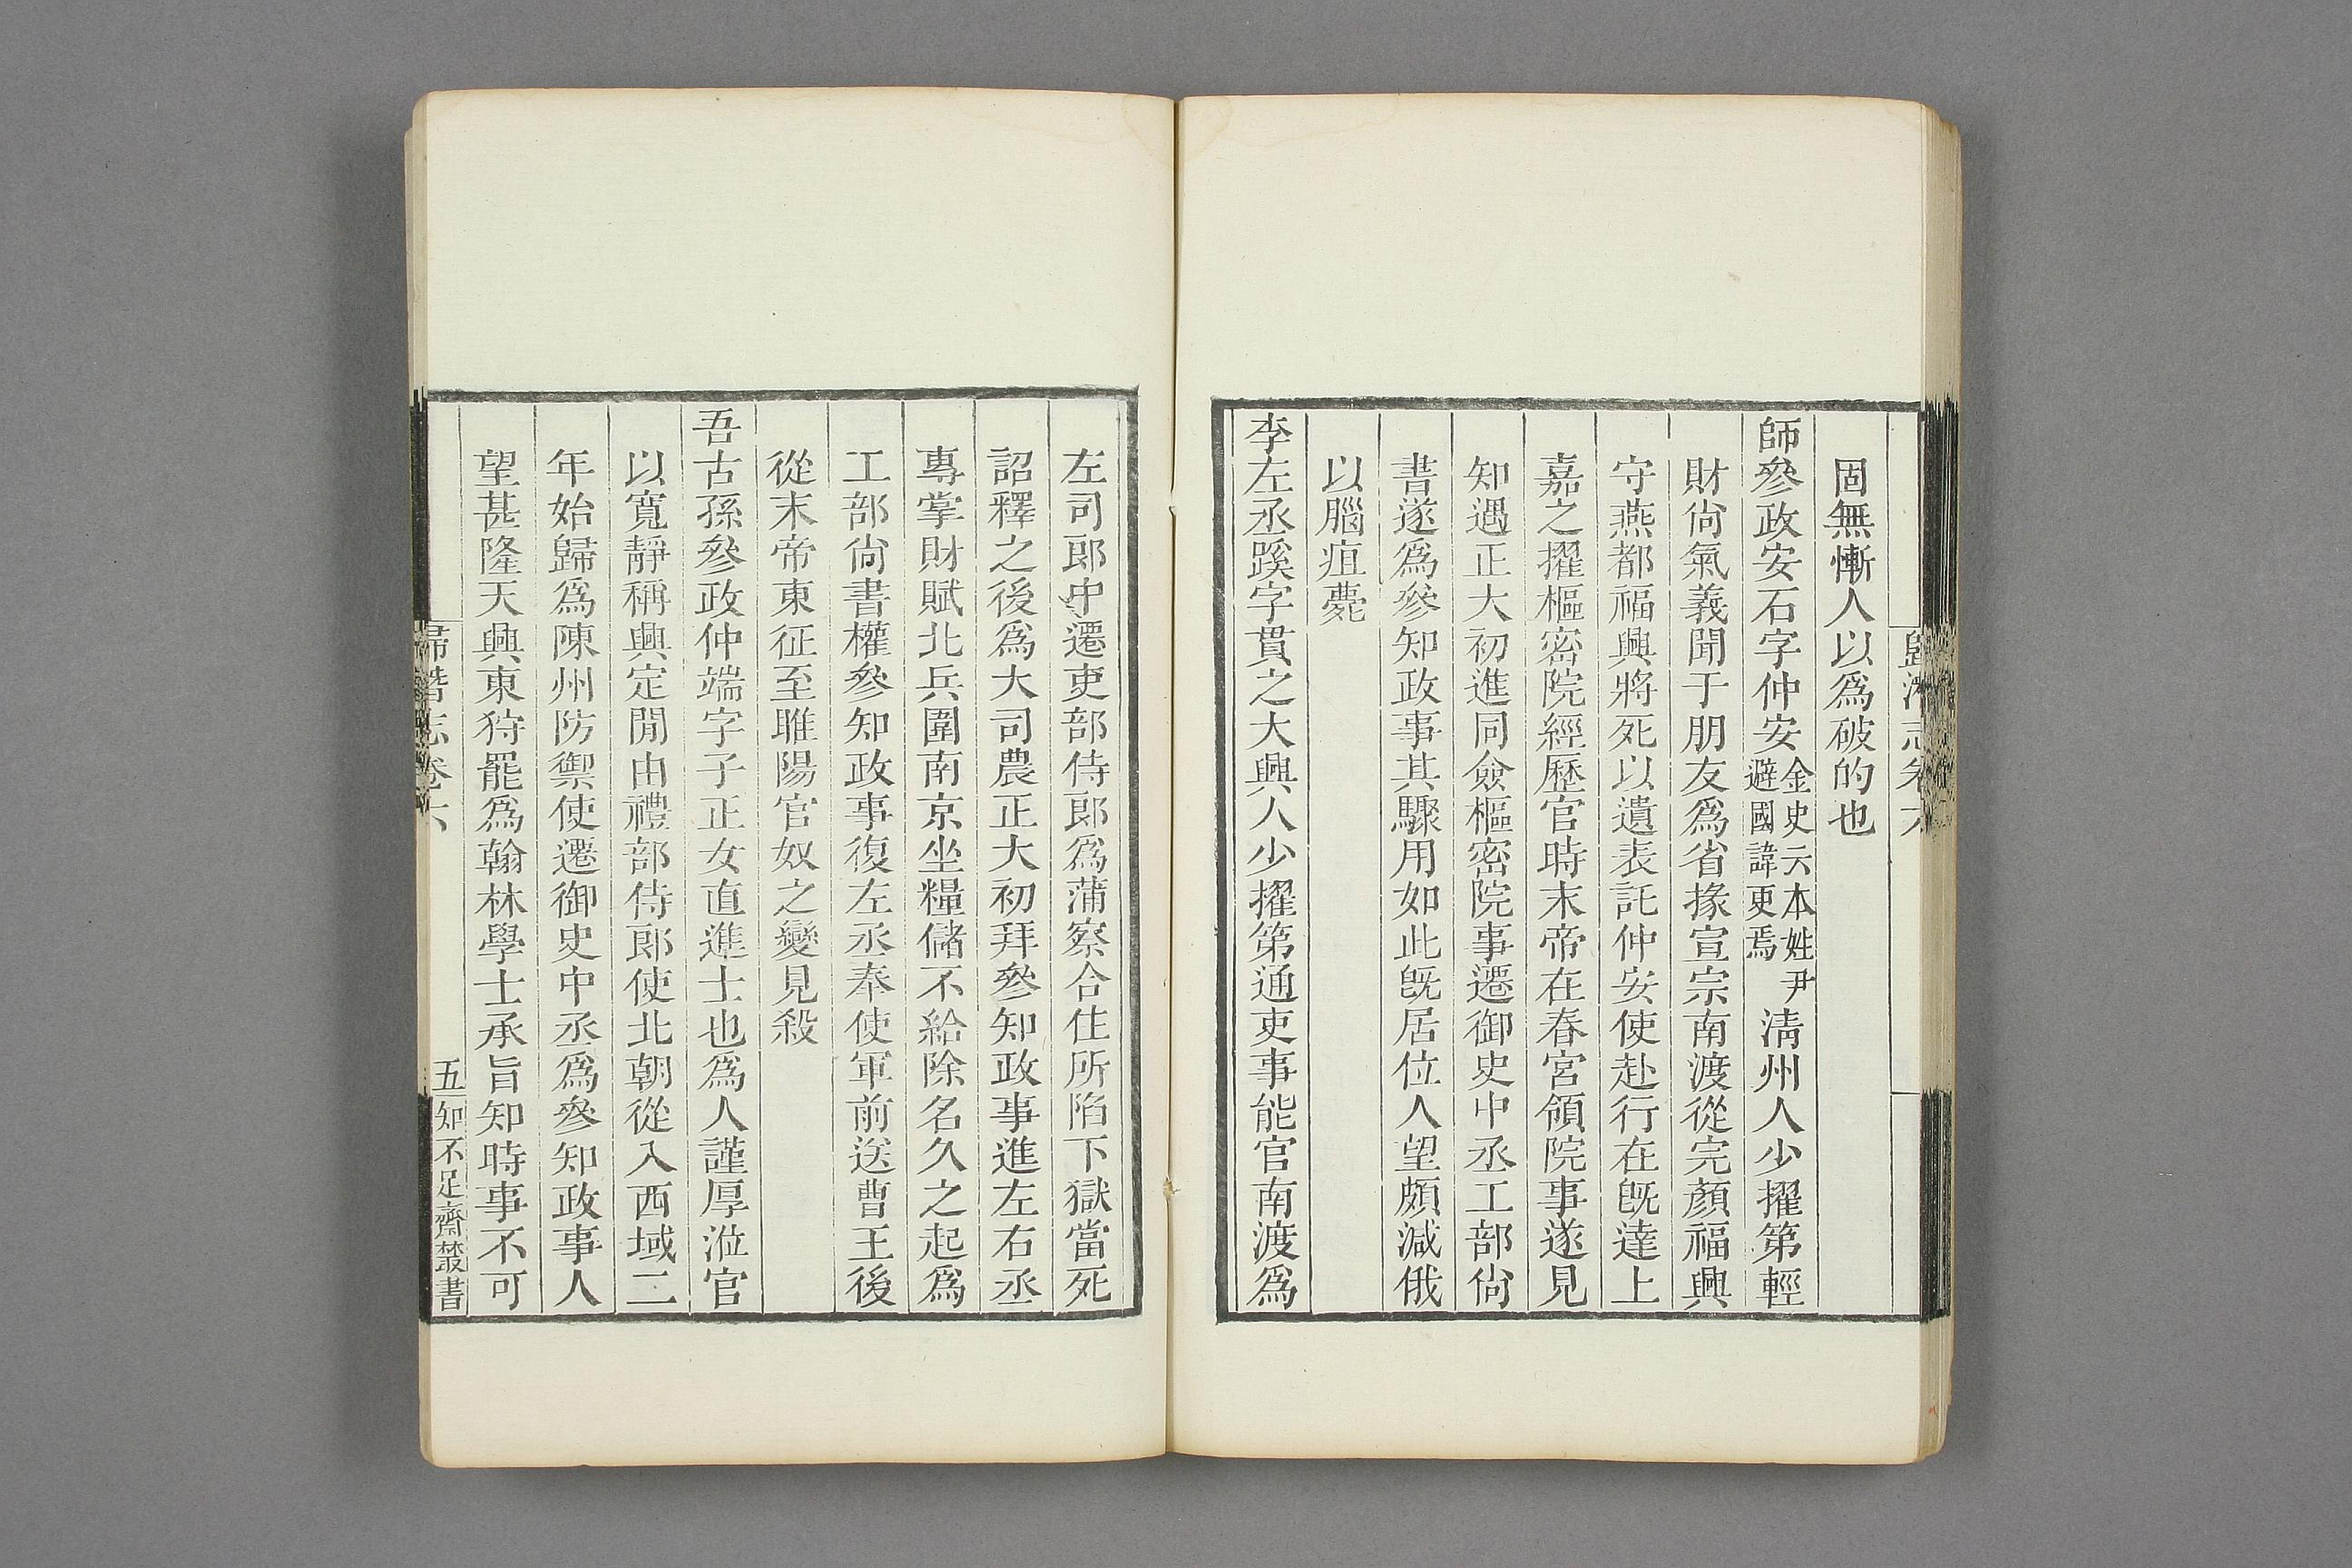 歸潛志卷六
固無慚人以爲破的也
師參政安石字仲安金史云本姓尹避國諱更焉淸州人少擢第輕
財尙氣義聞于朋友爲省掾宣宗南渡從完顏福興
守燕都福興將死以遺表託仲安使赴行在旣達上
嘉之擢樞密院經歷官時末帝在春宮領院事遂見
知遇正大初進同僉樞密院事遷御史中丞工部尙
書遂爲參知政事其驟用如此旣居位人望頗減俄
以腦疽薨
李左丞蹊字貫之大興人少擢第通吏事能官南渡爲
左司郎中遷吏部侍郎爲蒲察合住所陷下獄當死
詔釋之後爲大司農正大初拜參知政事進左右丞
專掌財賦北兵圍南京坐糧儲不給除名久之起爲
工部尙書權參知政事復左丞奉使軍前送曹王後
從末帝東征至睢陽官奴之變見殺
吾古孫參政仲端字子正女直進士也爲人謹厚涖官
以寬靜稱興定閒由禮部侍郎使北朝從入西域二
年始歸爲陳州防禦使遷御史中丞爲參知政事人
望甚隆天興東狩罷爲翰林學士承旨知時事不可
歸潛志卷六
五
知不足齋叢書